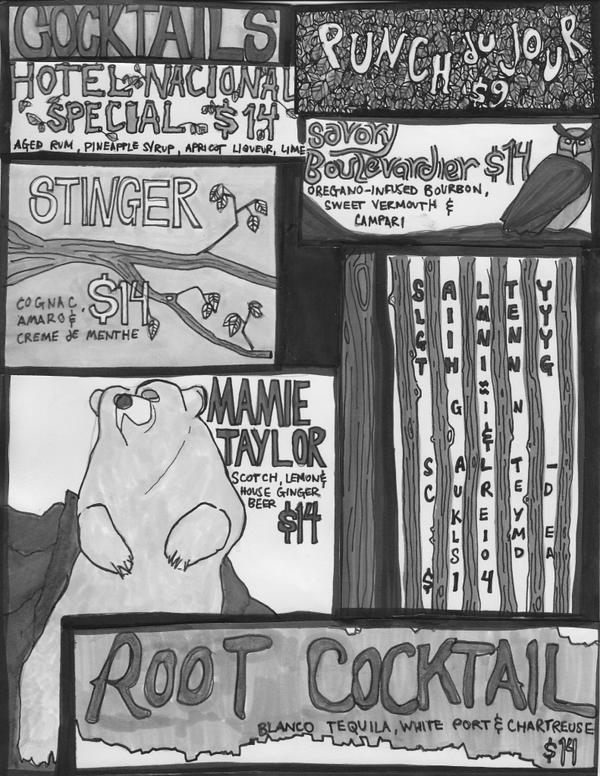 COCKTAILS
HOTEL NACIONAL
SPECIAL $14
AGED RUM, PINEAPPLE SYRUP, APRICOT LIQUEUR, LIME
PUNCH du JOUR
$9
Savory
Boulevardier $14
OREGANO-INFUSED BOURBON,
SWEET VERMOUTH &
CAMPARI
STINGER
$14
COGNAC,
AMARO &
CREME de MENTHE
SALTY
LIMEY
GINNY
THING
::
GiN
&
SALT-
CURED
KEY
LIME
SODA
$14
MAMIE
TAYLOR
SCOTCH, LEMON &
HOUSE GINGER
BEER
$14
ROOT COCKTAIL
BLANCO TEQUILA, WHITE PORT & CHARTREUSE
$14